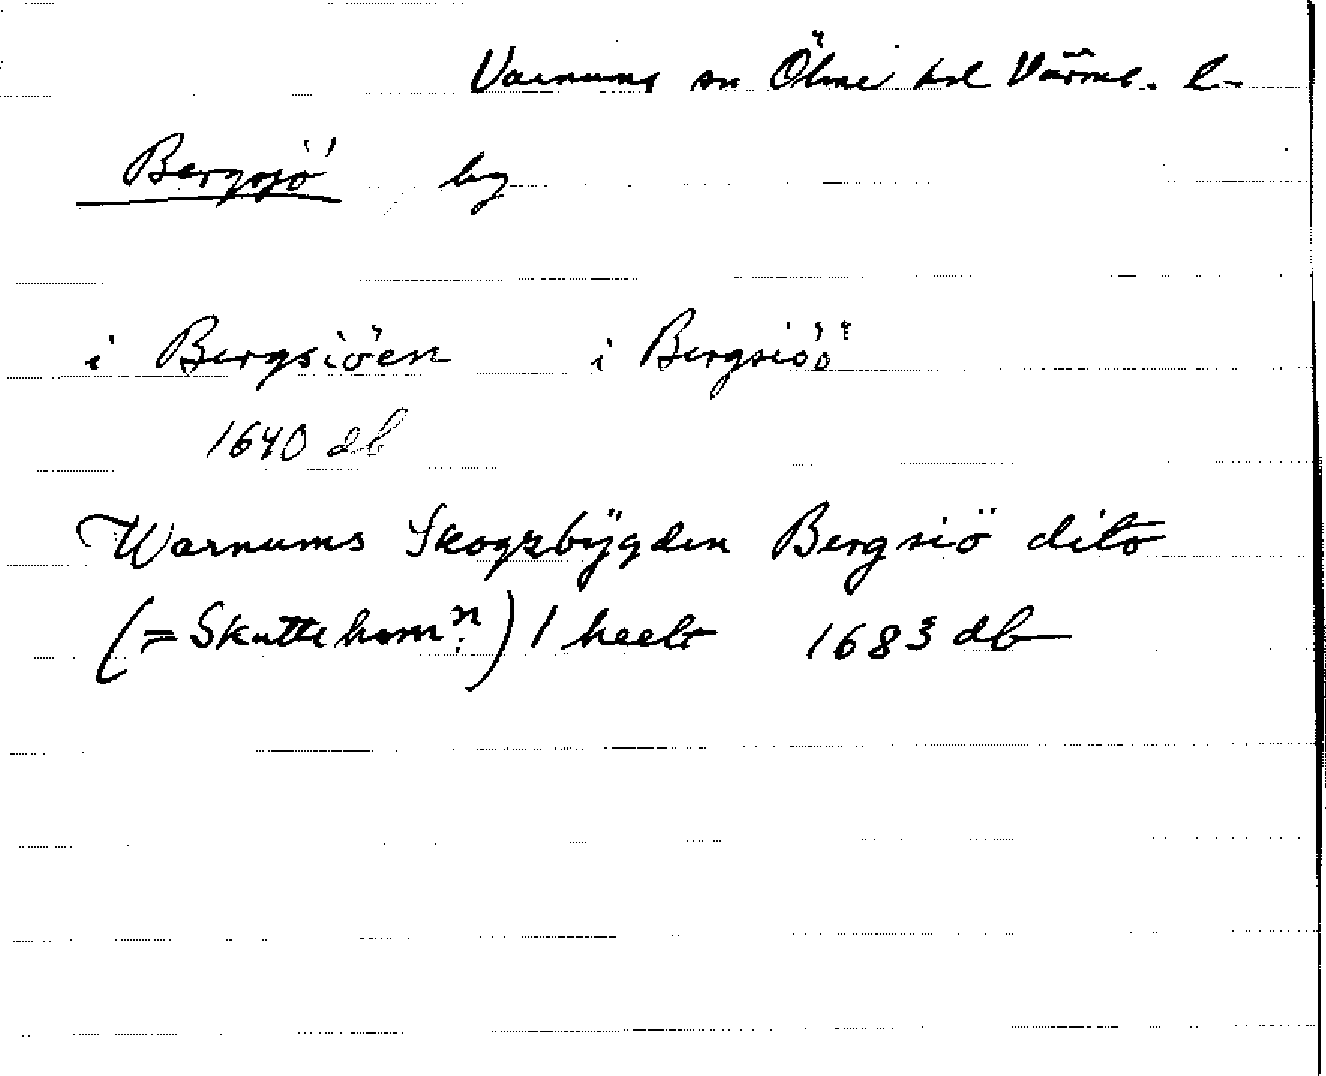 Varnums sn Ölme hd Värml. l
Bergsjö by
i Bergsiöen i Bergsiöö
1640 db
Warnums Skogzbÿgden Bergsiö dito
(= Skattehem:n) 1 heelt 1683 db